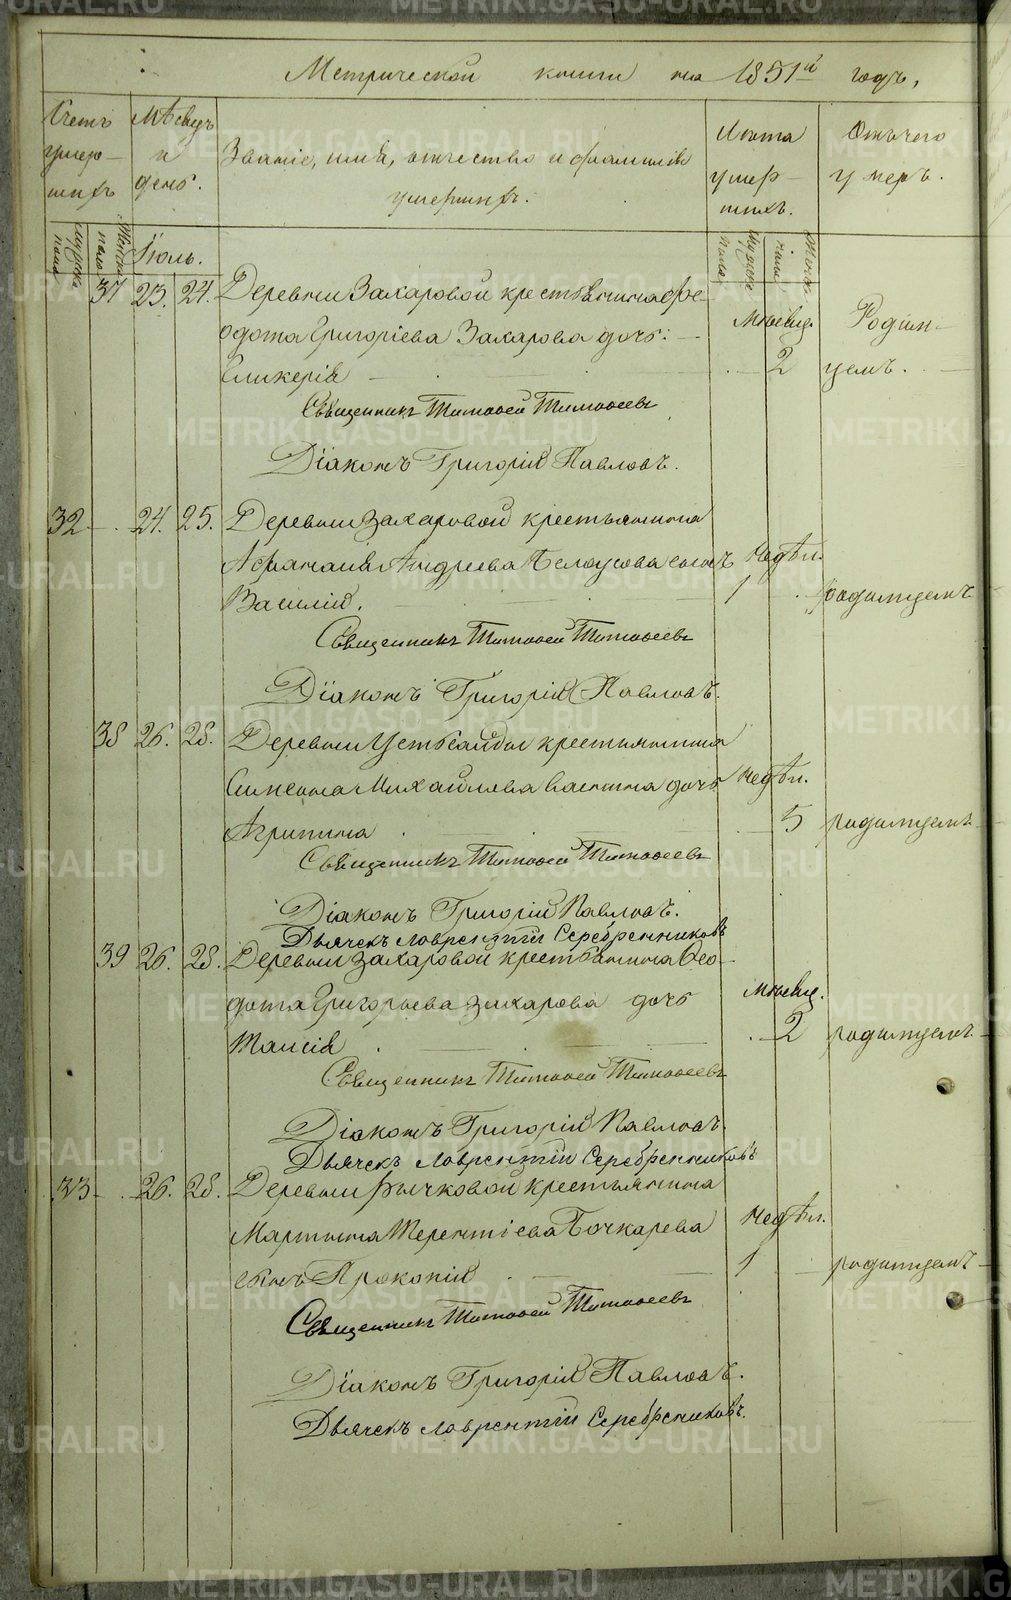 Метрической книги на 1851й годъ,
Счетъ умершихъ
Мѣсяцъ и день.
Званіе, имя, отчество и фамилія умершихъ.
Лѣта умершихъ.
Отъ чего умеръ.
Мужска пола
Женска пола
Іюль.
Мужска пола
Женска
37 23. 24. Деревни Захаровой крестьянина Ѳе-
одота Григоріева Захарова дочь Мѣсяц. Родим-
Гликерія 2 цемъ.
Священникъ Тимоѳей Тимоѳеевъ
Діаконъ Григорій Павловъ.
32 24. 25. Деревни Захаровой крестьянина
Аѳанасія Андреева Белоусова сынъ Недѣл.
Василій. 1 родимцемъ
Священникъ Тимоѳей Тимоѳеевъ
Діаконъ Григорій Павловъ.
38 26. 28. Деревни Устькайды крестьянина
Симеона Михайлова Васнина дочь Недѣл.
Агрипина 5 родимцемъ
Священникъ Тимоѳей Тимоѳеевъ
Діаконъ Григорій Павловъ.
Дьячекъ Лаврентій Серебренниковъ
39 26. 28. Деревни Захаровой крестьянина Ѳео-
дота Григорьева Захарова дочь Мѣсяц.
Таисія 2 родимцемъ
Священникъ Тимоѳей Тимоѳеевъ
Діаконъ Григорій Павловъ.
Дьячекъ Лаврентій Серебренниковъ
33 26. 28. Деревни Бычковой крестьянина
Мартина Терентіева Бочкарева Недѣл.
сынъ Прокопій 1 родимцемъ
Священникъ Тимоѳей Тимоѳеевъ
Діаконъ Григорій Павловъ.
Дьячекъ Лаврентій Серебрениковъ.
METRIKI.GASO-URAL.RU